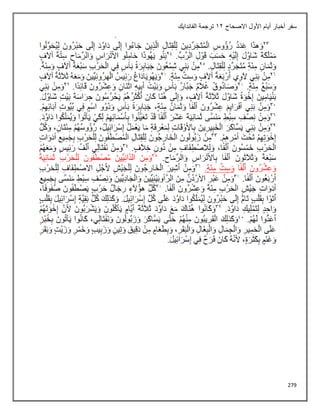 سفر أخبار أيام الأول الاصحاح ١٢ ترجمة الفاندايك
وَهذَا عَدَدُ رُؤُوسِ الْمُتَجَرِّدِينَ لِلْقِتَالِ الَّذِينَ جَاءُوا إِلَى دَاوُدَ إِلَى حَبْرُونَ لِيُحَوِّلُوا
مَمْلَكَةَ شَاوُلَ إِلَيْهِ حَسَبَ قَوْلِ الرَّبِّ. بَنُو يَهُوذَا حَامِلُو الأَتْرَاسِ وَالرِّمَاحِ سِتَّةُ آلاَفٍ
وَثَمَانِ مِئَةِ مُتَجَرِّدٍ لِلْقِتَالِ. مِنْ بَنِي شِمْعُونَ جَبَابِرَةُ بَأْسٍ فِي الْحَرْبِ سَبْعَةُ آلاَفٍ وَمِئَةٌ.
مِنْ بَنِي لاَوِي أَرْبَعَةُ آلاَفٍ وَسِتُّ مِئَةٍ. وَيَهُويَادَاعُ رَئِيسُ الْهرُونِيِّينَ وَمَعَهُ ثَلاَثَةُ آلاَفٍ
وَسَبْعُ مِئَةٍ. وَصَادُوقُ غُلاَمٌ جَبَّارُ بَأْسٍ وَبَيْتُ أَبِيهِ اثْنَانِ وَعِشْرُونَ قَائِدًا. وَمِنْ بَنِي
بَنْيَامِينَ إِخْوَةُ شَاوُلَ ثَلاَثَةُ آلاَفٍ، وَإِلَى هُنَا كَانَ أَكْثَرُهُمْ يَحْرُسُونَ حِرَاسَةَ بَيْتِ شَاوُلَ.
وَمِنْ بَنِي أَفْرَايِمَ عِشْرُونَ أَلْفًا وَثَمَانُ مِئَةٍ، جَبَابِرَةُ بَأْسٍ وَذَوُو اسْمٍ فِي بُيُوتِ آبَائِهِمْ.
وَمِنْ نِصْفِ سِبْطِ مَنَسَّى ثَمَانِيَةَ عَشَرَ أَلْفًا قَدْ تَعَيَّنُوا بِأَسْمَائِهِمْ لِكَيْ يَأْتُوا وَيُمَلِّكُوا دَاوُدَ.
وَمِنْ بَنِي يَسَّاكَرَ الْخَبِيرِينَ بِالأَوْقَاتِ لِمَعْرِفَةِ مَا يَعْمَلُ إِسْرَائِيلُ، رُؤُوسُهُمْ مِئَتَانِ، وَكُلُّ
إِخْوَتِهِمْ تَحْتَ أَمْرِهِمْ. مِنْ زَبُولُونَ الْخَارِجُونَ لِلْقِتَالِ الْمُصْطَفُّونَ لِلْحَرْبِ بِجَمِيعِ أَدَوَاتِ
الْحَرْبِ خَمْسُونَ أَلْفًا، وَلِلاصْطِفَافِ مِنْ دُونِ خِلاَفٍ. وَمِنْ نَفْتَالِي أَلْفُ رَئِيسٍ وَمَعَهُمْ
سَبْعَةٌ وَثَلاَثُونَ أَلْفًا بِالأَتْرَاسِ وَالرِّمَاحِ. وَمِنَ الدَّانِيِّينَ مُصْطَفُّونَ لِلْحَرْبِ ثَمَانِيَةٌ
وَعِشْرُونَ أَلْفًا وَسِتُّ مِئَةٍ. وَمِنْ أَشِيرَ الْخَارِجُونَ لِلْجَيْشِ لأَجْلِ الاصْطِفَافِ لِلْحَرْبِ
أَرْبَعُونَ أَلْفًا. وَمِنْ عَبْرِ الأُرْدُنِّ مِنَ الرَّأُوبَيْنِيِّينَ وَالْجَادِيِّينَ وَنِصْفِ سِبْطِ مَنَسَّى بِجَمِيعِ
أَدَوَاتِ جَيْشِ الْحَرْبِ مِئَةٌ وَعِشْرُونَ أَلْفًا. كُلُّ هؤُلاَءِ رِجَالُ حَرْبٍ يَصْطَفُّونَ صُفُوفًا،
أَتَوْا بِقَلْبٍ تَامٍّ إِلَى حَبْرُونَ لِيُمَلِّكُوا دَاوُدَ عَلَى كُلِّ إِسْرَائِيلَ. وَكَذلِكَ كُلُّ بَقِيَّةِ إِسْرَائِيلَ بِقَلْبٍ
وَاحِدٍ لِتَمْلِيكِ دَاوُدَ. وَكَانُوا هُنَاكَ مَعَ دَاوُدَ ثَلاَثَةَ أَيَّامٍ يَأْكُلُونَ وَيَشْرَبُونَ لأَنَّ إِخْوَتَهُمْ
أَعَدُّوا لَهُمْ. وَكَذلِكَ الْقَرِيبُونَ مِنْهُمْ حَتَّى يَسَّاكَرَ وَزَبُولُونَ وَنَفْتَالِي، كَانُوا يَأْتُونَ بِخُبْزٍ
عَلَى الْحَمِيرِ وَالْجِمَالِ وَالْبِغَالِ وَالْبَقَرِ، وَبِطَعَامٍ مِنْ دَقِيق وَتِينٍ وَزَبِيبٍ وَخَمْرٍ وَزَيْتٍ وَبَقَرٍ
وَغَنَمٍ بِكَثْرَةٍ، لأَنَّهُ كَانَ فَرَحٌ فِي إِسْرَائِيلَ.
279